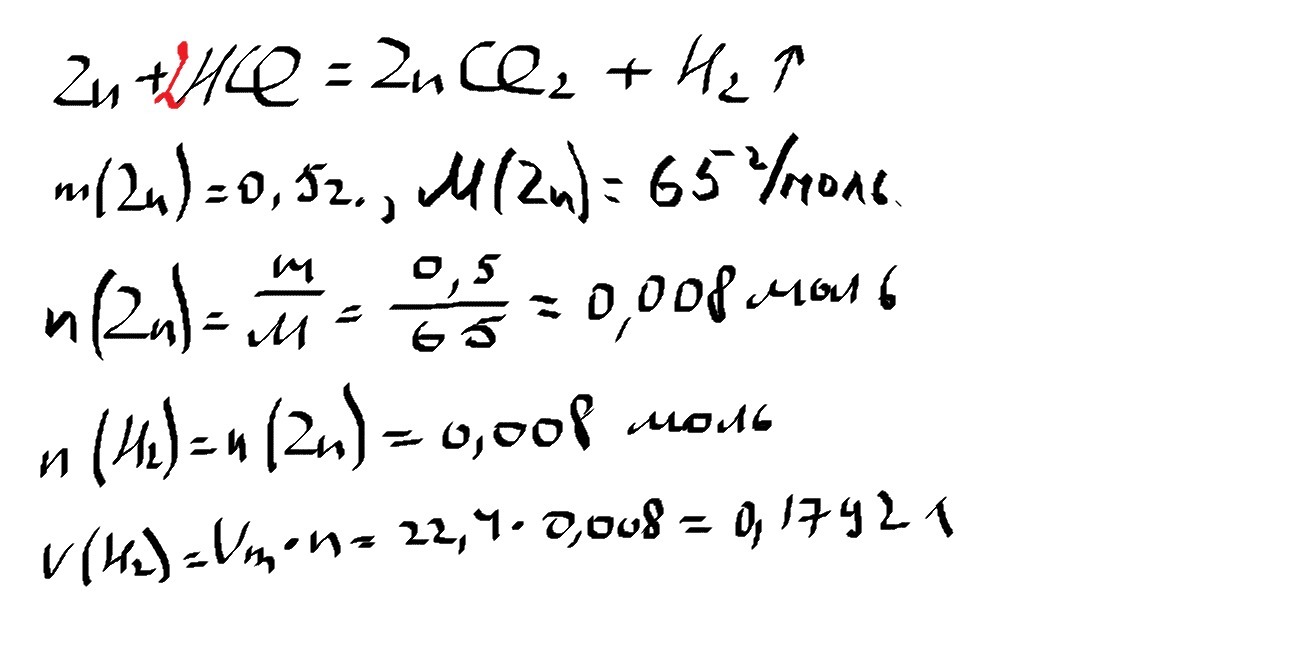 Zn + 2HCl = ZnCl₂ + H₂ ↑
m(Zn) = 0,5 г., M(Zn) = 65 г/моль.
n(Zn) = m/M = 0,5/65 = 0,008 моль
n(H₂) = n(Zn) = 0,008 моль
V(H₂) = Vm · n = 22,4 · 0,008 = 0,1792 л